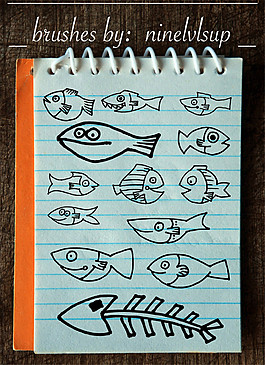 _ brushes by: ninelvlsup _